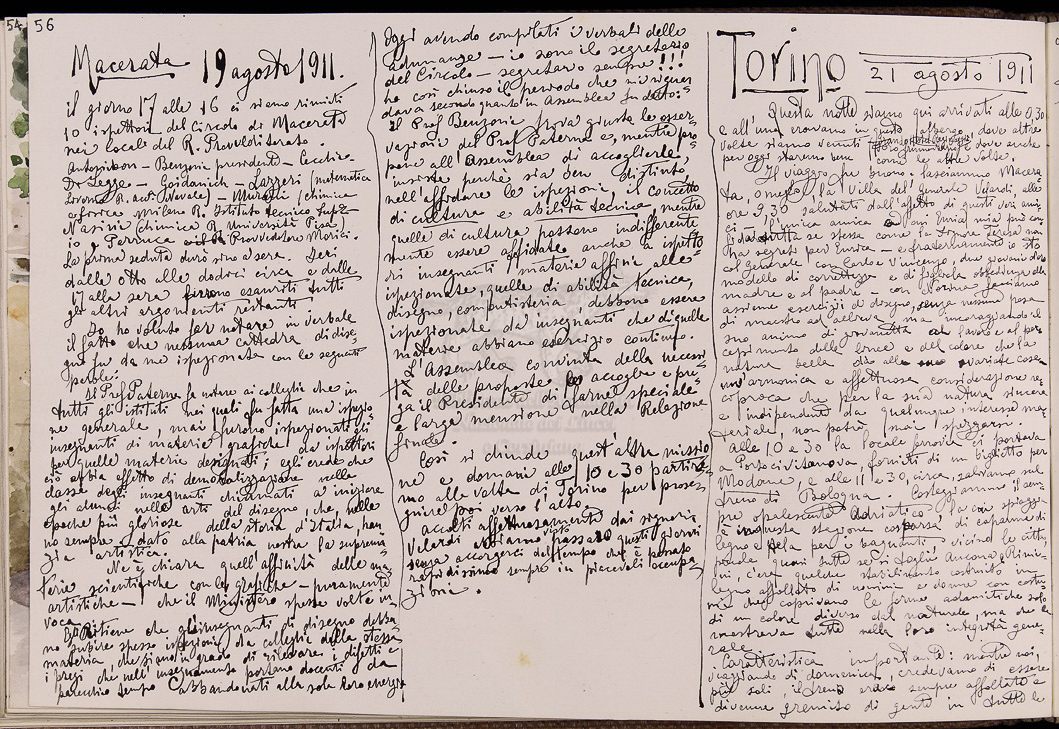 54 56
Macerata 19 agosto 1911.
il giorno 17 alle 16 ci siamo riuniti
10 ispettori del Circolo di Macerata
nei locali del R. Provveditorato.
Benzoni presidente
De Legge – Goidanich – Lazzeri (matematica
Livorno R. acc. Navale) – (chimica
Milano R. Istituto tecnico Sup.
Nasini (chimica R. Università Pisa
io, Perruca Provveditore
La prima seduta durò sino a sera. Ieri
dalle otto alle dodici circa e dalle
17 alla sera furono esauriti tutti
gli altri argomenti restanti.
Io ho voluto far notare in verbale
il fatto che nessuna cattedra di dise-
gno fu da me ispezionata con le seguenti
parole:
Il Prof Paterna fa notare ai colleghi che in
tutti gli istituti nei quali fu fatta una ispezio-
ne generale, mai furono ispezionati gli
insegnanti di materie grafiche da ispettori
per quelle materie designati; egli crede che
ciò abbia effetto di demoralizzazione nella
classe degli insegnanti chiamati a iniziare
gli alunni nelle arti del disegno, che, nelle
epoche più gloriose della storia d'Italia, han
no sempre dato alla patria nostra la suprema
zia artistica.
Nè è chiara quell'affinità delle ma-
terie scientifiche con le grafiche – puramente
artistiche – che il Ministero spesse volte in
voca.
Ritiene che gli insegnanti di disegno debba
no subire spesso ispezioni da colleghi della stessa
materia, che siano in grado di rilevare i difetti e
i pregi che nell'insegnamento portano docenti da
parecchio tempo abbandonati alle sole loro energie
Oggi avendo compilati i verbali delle
adunanze – io sono il segretario
del Circolo – segretario sempre!!!
ho così chiuso il periodo che mi riguar
dava secondo quanto in Assemblea fu detto:
Il Prof Benzoni trova giuste le osser-
vazioni del Prof Paterna e, mentre pro
pone all'Assemblea di accoglierle,
insiste perchè sia ben distinto,
nell'affidare le ispezioni, il concetto
di cultura e abilità tecnica, mentre
quelle di cultura possono indifferente
mente essere affidate anche a ispetto
ri insegnanti materie affini alle
ispezionate, quelle di abilità tecnica,
disegno, computisteria debbono essere
ispezionate da insegnanti che di quelle
materie abbiano esercizio continuo.
L'Assemblea convinta della necessi
tà delle proposte le accoglie e pre
ga il Presidente di farne speciale
e larga menzione nella Relazione
finale.
Così si chiude quest'altra missio
ne e domani alle 10 e 30 partire-
mo alla volta di Torino per prose-
guire poi verso l'alto.
Accolti affettuosamente dai signori
Velardi abbiamo visto passare questi giorni
senza accorgerci del tempo che è passato
rapidissimo sempre in piacevoli occupa
zioni.
Torino 21 agosto 1911
Questa notte siamo qui arrivati alle 0,30
e all'una eravamo in questo albergo dove altre
volte siamo venuti dove anche
per oggi staremo bene come le altre volte.
Il viaggio fu buono – lasciammo Macera
ta, o meglio la Villa del generale Velardi, alle
ore 9,30 salutati dall'affetto di questi veri ami
ci – l'unica amica ad cui Enrica mia può con
fidar tutta se stessa come la Signora Teresa non
ha segreti per Enrica – e fraternamente io sto
col Generale – Carlo e Vincenzo, due giovani sono
modello di correttezza e di figliale obbedienza alla
madre e al padre – con Norma facciamo
assieme esercizi di disegno, senza nessuna posa
di maestro ad allieva ma incoraggiando il
suo animo di giovanetta al lavoro e al per
cepimento delle linee e del colore che la
natura bella dà alle svariate cose
un'armonica e affettuosa considerazione re
ciproca che per la sua natura sincera
e indipendente da qualunque interesse ma
teriale non potrà mai spezzarsi.
Alle 10 e 30 la locale ferrovia ci portava
a Portocivitanova, forniti di un biglietto per
Modane, e alle 11 e 30, circa, salivamo sul
treno di Bologna. Costeggiammo il sem
pre opalescente Adriatico la cui spiaggia
è in questa stagione cosparsa di capanne di
legno e tela per i bagnanti vicino le città,
prende quasi tutte se si toglie Ancona e Rimi-
ni, c'era qualche stabilimento costruito in
legno affollato di uomini e donne con costu
mi che coprivano le forme adamitiche solo
di un colore diverso dal naturale, ma che le
mostrava tutte nella loro integrità gene-
rale.
Caratteristica importante: mentre noi,
viaggiando di domenica, credevamo di essere
più soli, il treno era sempre affollato e
divenne gremito di gente in tutte le